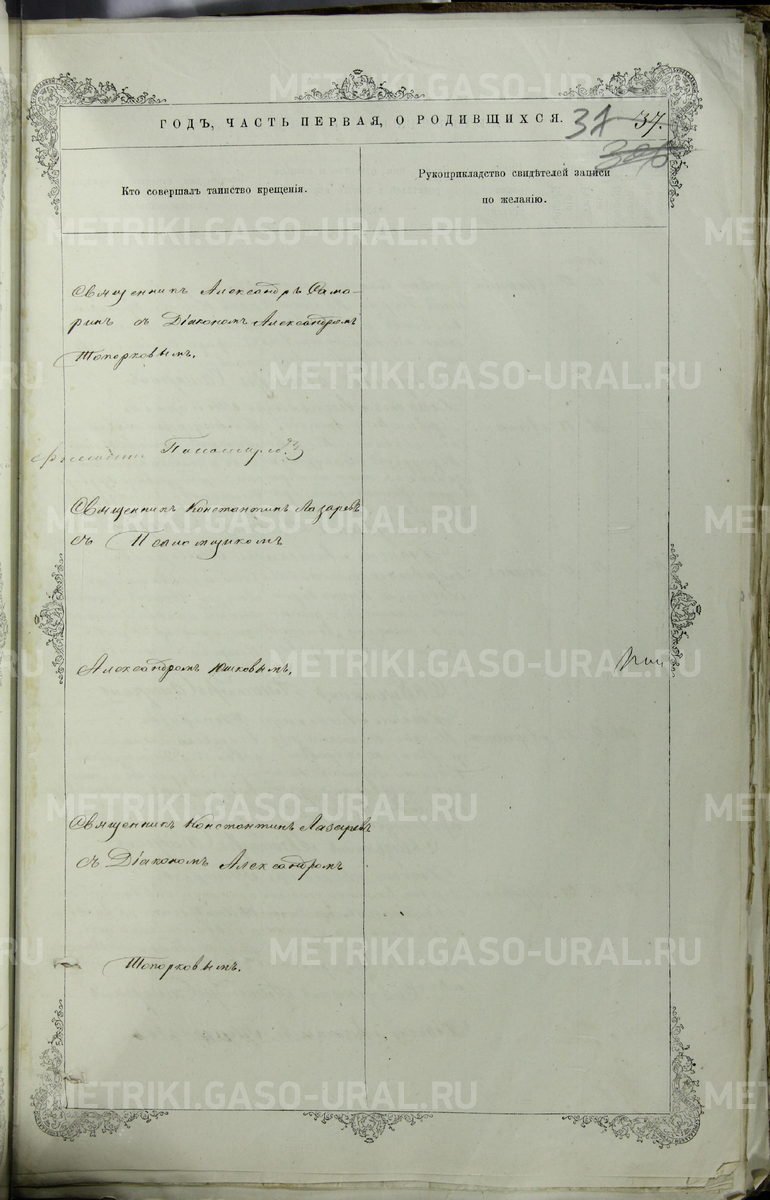 ГОДЪ, ЧАСТЬ ПЕРВАЯ, О РОДИВШИХСЯ.
37 37.
Кто совершалъ таинство крещенія.
Рукоприкладство свидѣтелей записи
по желанію.
Священникъ Александръ Сама-
ринъ съ Діакономъ Александромъ
Топорковымъ.
Священникъ Константинъ Лазаревъ
съ Псаломщикомъ
Александромъ Юшковымъ.
Священникъ Константинъ Лазаревъ
съ Діакономъ Александромъ
Топорковымъ.
METRIKI.GASO-URAL.RU